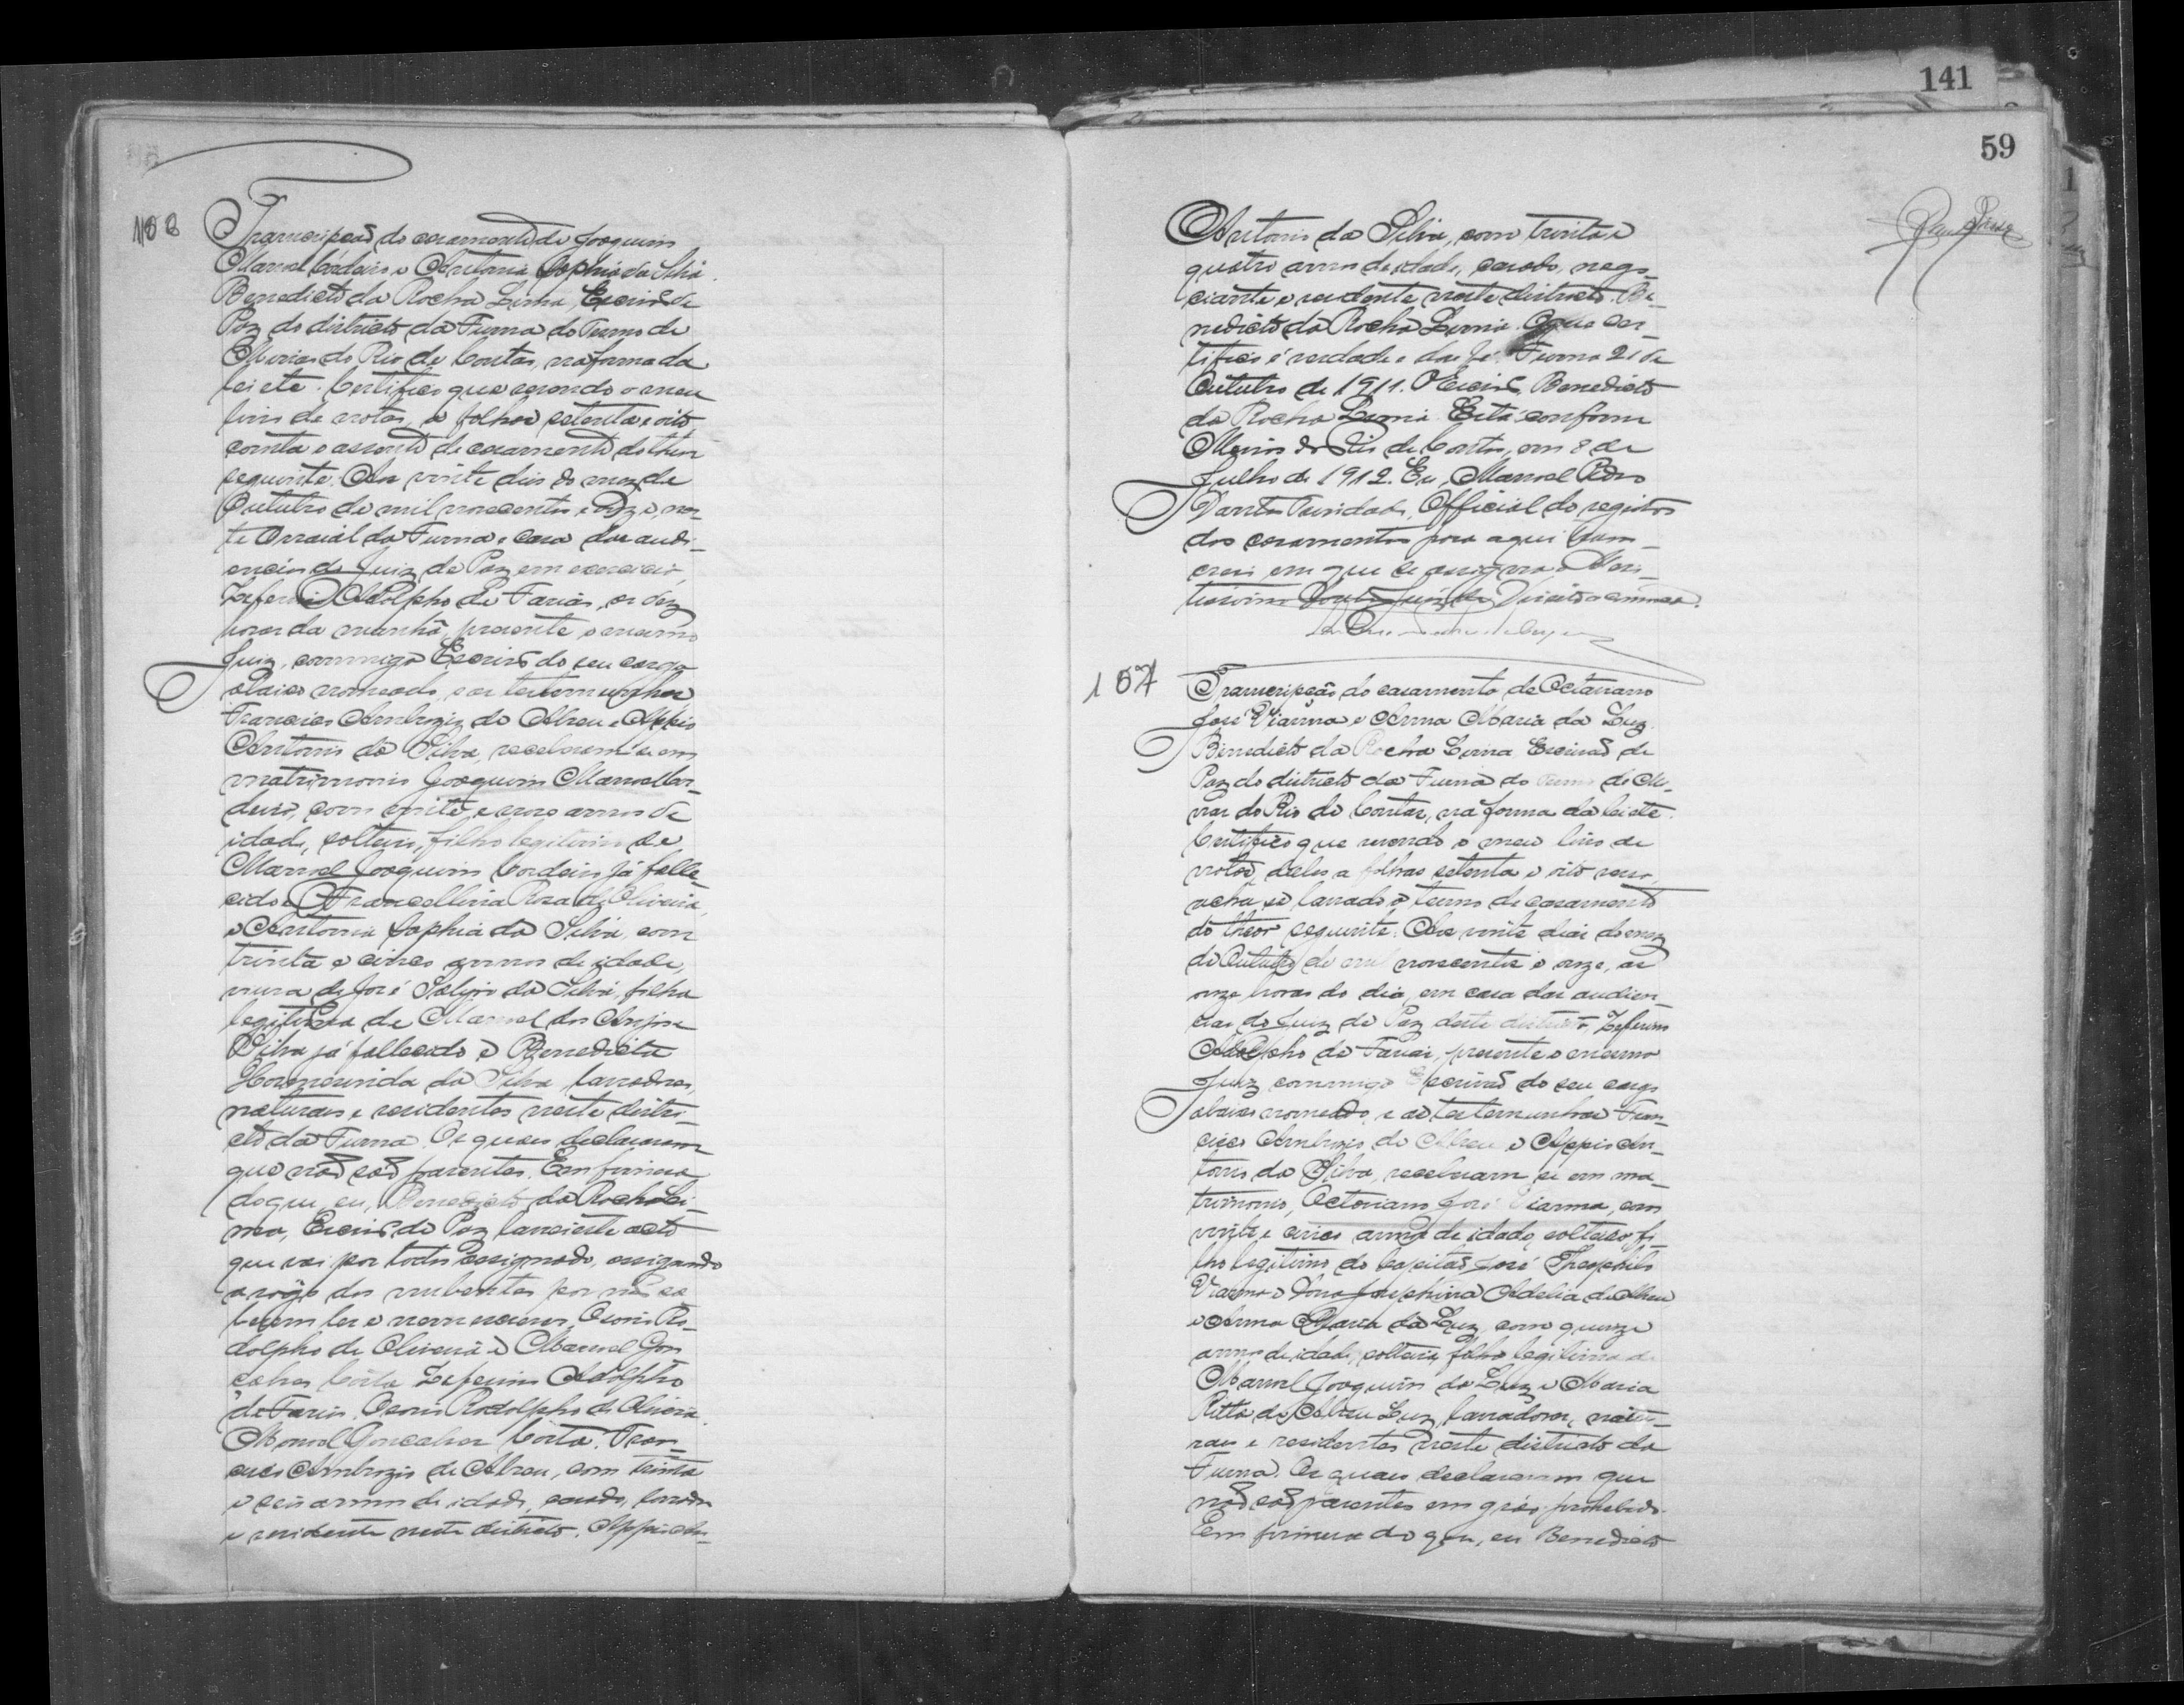 141
59
Transcripção do casamento de Joaquim
Manoel Cordeiro e Antonia Sophia da Silva.
Benedicto da Rocha Lima, Escrivão de
Paz do districto da Furna do Termo de
Minas do Rio de Contas, na forma da
lei etc. Certifico que revendo o meu
livro de notas, a folhas setenta e oito
consta o assento de casamento do theor
seguinte: Aos vinte dias do mez de
Outubro de mil novecentos e onze, nes-
te Arraial da Furna e casa das audi-
encias do Juiz de Paz em exercicio,
Zeferino Adolpho de Farias, as dez
horas da manhã, presente o mesmo
Juiz, commigo Escrivão do seu cargo
abaixo nomeado, e as testemunhas
Francisco Ambrozio de Abreu e Appio
Antonio da Silva, receberam-se em
matrimonio Joaquim Manoel Cor-
deiro, com vinte e nove annos de
idade, solteiro, filho legitimo de
Manoel Joaquim Cordeiro já falle-
cido e Francellina Rosa de Oliveira,
e Antonia Sophia da Silva, com
trinta e cinco annos de idade,
viuva de José da Silva, filha
legitima de Manoel dos Anjos
Silva já fallecido e Benedicta
da Silva, lavradores,
naturaes e residentes neste distri-
cto da Furna. Os quaes declararam
que não são parentes. Em firmesa
do que, eu, Benedicto da Rocha Li-
ma, Escrivão de Paz lavrei este acto
que vai por todos assignado, assignando
a rogo dos nubentes por não sa-
berem ler e nem escrever, Ro-
dolpho de Oliveira e Manoel Gon-
calves Costa. Zeferino Adolpho
de Farias. Rodolpho de Oliveira.
Manoel Goncalves Costa. Fran-
cisco Ambrozio de Abreu, com trinta
e seis annos de idade, casado, lavrador
e residente neste districto. Appio An-
Antonio da Silva, com trinta e
quatro annos de idade, casado, nego-
ciante e residente neste districto. Be-
nedicto da Rocha Lima. O que cer-
tifico é verdade e dou fé. Furna 21 de
Outubro de 1911. O Escrivão, Benedicto
da Rocha Lima. Está conforme
Minas do Rio de Contas, em 8 de
Julho de 1912. Eu, Manoel Pedro
Dantas Trindade, Official do registro
dos casamentos para aqui trans-
crevi em que se assigna o Meri-
tissimo Doutor Juiz de Direito
107
Transcripção do casamento de Octaviano
José Vianna e Anna Maria da Luz.
Benedicto da Rocha Lima Escrivão de
Paz do districto da Furna do Termo de Mi-
nas do Rio de Contas, na forma da lei etc.
Certifico que revendo o meu livro de
notas, delles a folhas setenta e oito verso,
acha-se lavrado o termo de casamento
do theor seguinte: Aos vinte dias do mez
de Outubro de mil novecentos e onze, as
onze horas do dia, em casa das audien-
cias do Juiz de Paz deste districto, Zeferino
Adolpho de Farias, presente o mesmo
Juiz commigo Escrivão do seu cargo
abaixo nomeado, e as testemunhas Fran-
cisco Ambrozio de Abreu e Appio An-
tonio da Silva, receberam-se em ma-
trimonio, Octaviano José Vianna, com
vinte e cinco annos de idade, solteiro, fi-
lho legitimo do Capitão José Theophilo
Vianna e Dona Josephina Adelia de Abreu
e Anna Maria da Luz, com quinze
annos de idade, solteira, filha legitima de
Manoel Joaquim da Luz e Maria
Ritta de Abreu Luz, lavradores, natu-
raes e residentes neste districto da
Furna. Os quaes declararam que
não são parentes em gráo prohebido.
Em firmesa do que, eu Benedicto